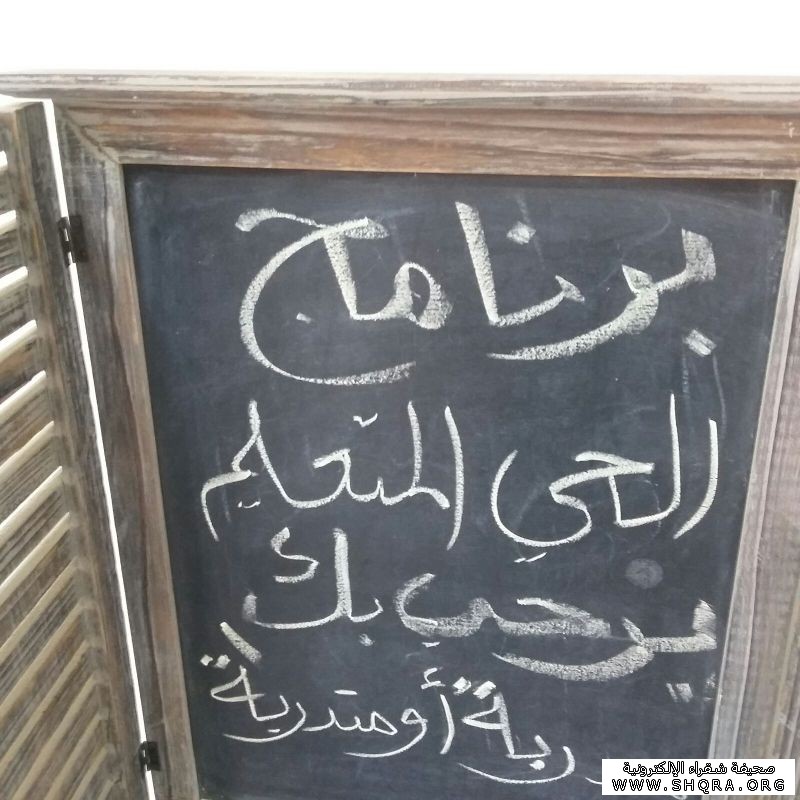 برنامج
الحي المتعلم
يرحب بك
أو متدربة
صحيفة شقراء الإلكترونية
WWW.SHQRA.ORG